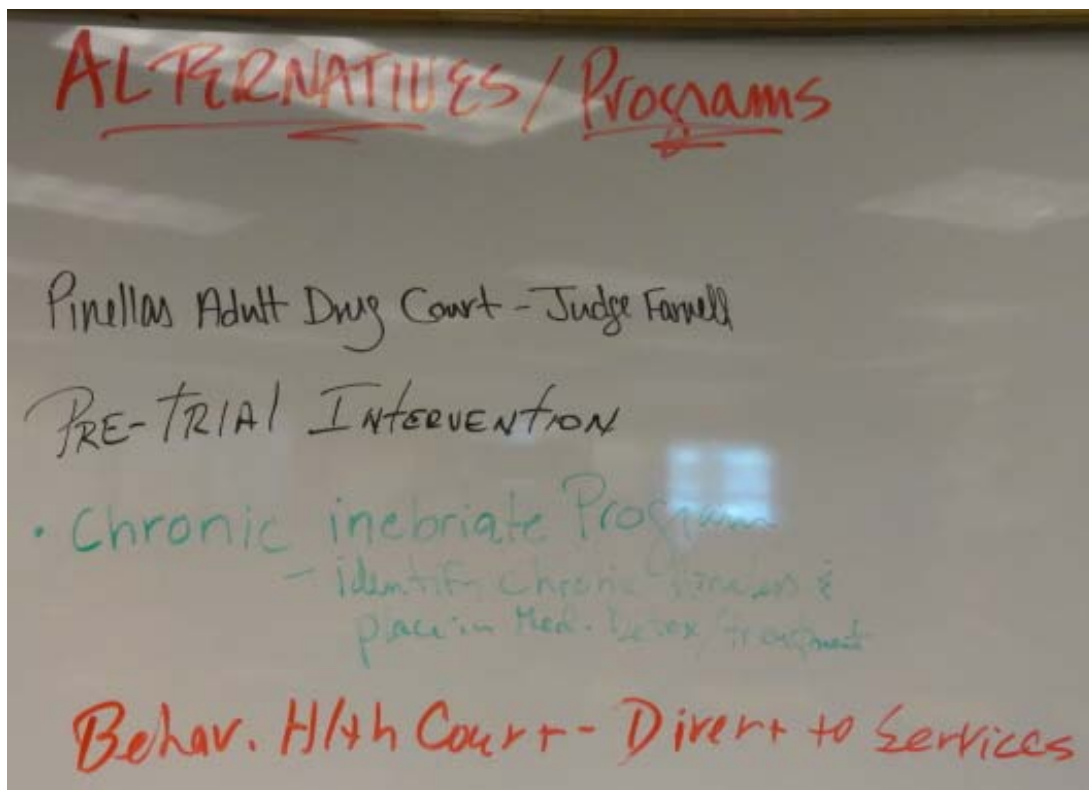 ALTERNATIVES / Programs
Pinellas Adult Drug Court - Judge Farnell
PRE-TRIAl INTERVENTION
• Chronic inebriate Program
- identify chronic &
place in Med. Detox/treatment
Behav. Hlth Court - Divert to Services